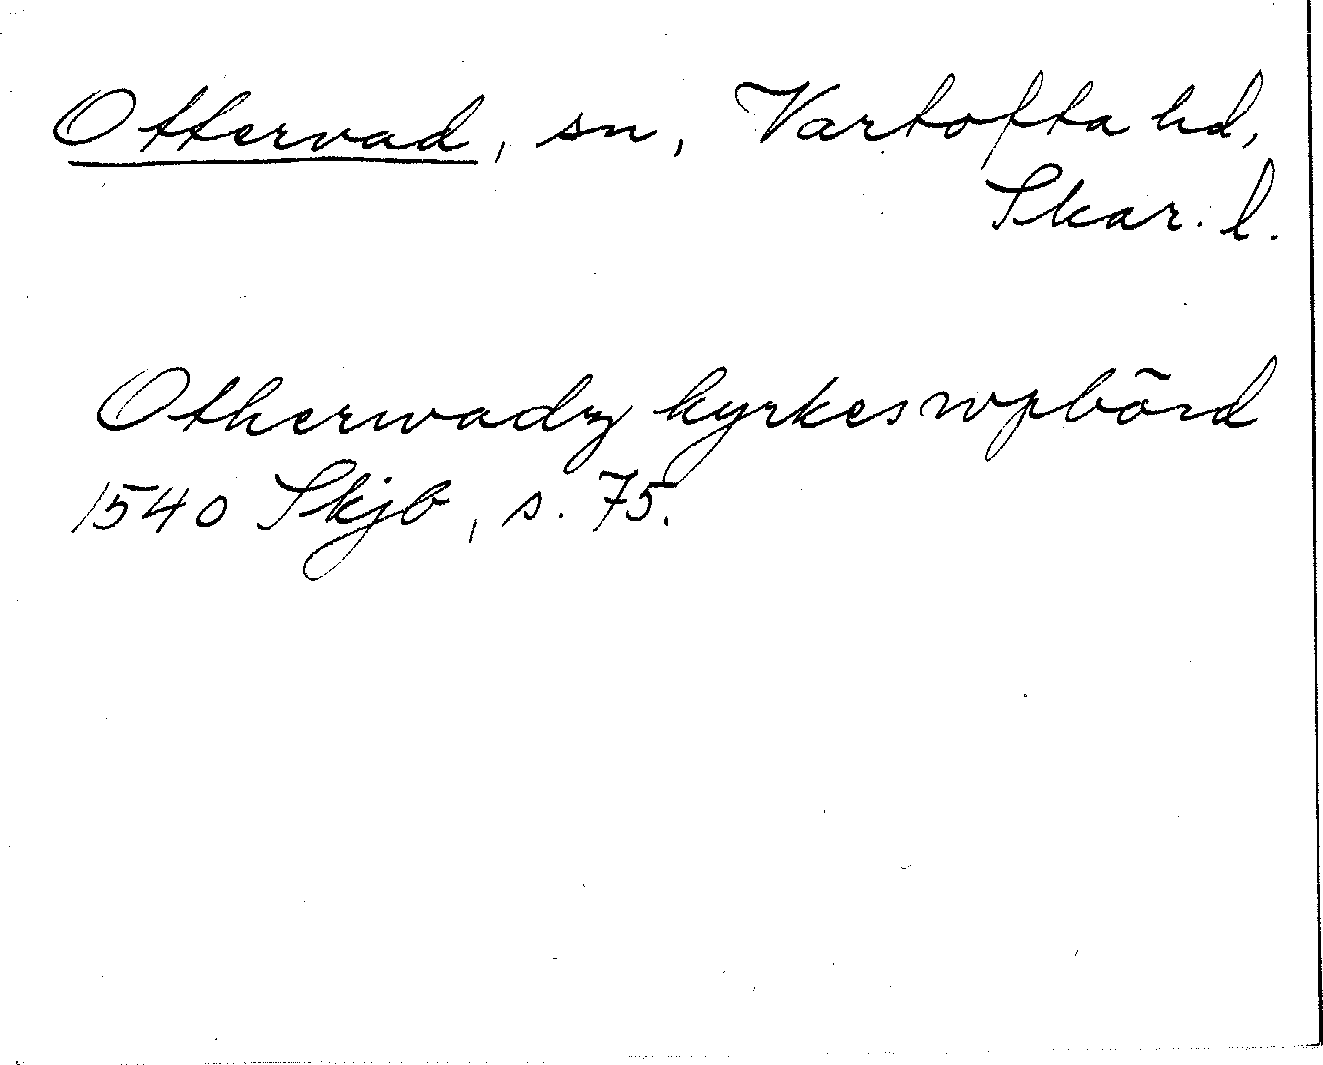 Ottervad, sn, Vartofta hd,
Skar. l.
Otherwadz kyrkes wpbörd
1540 Skjb, s. 75.